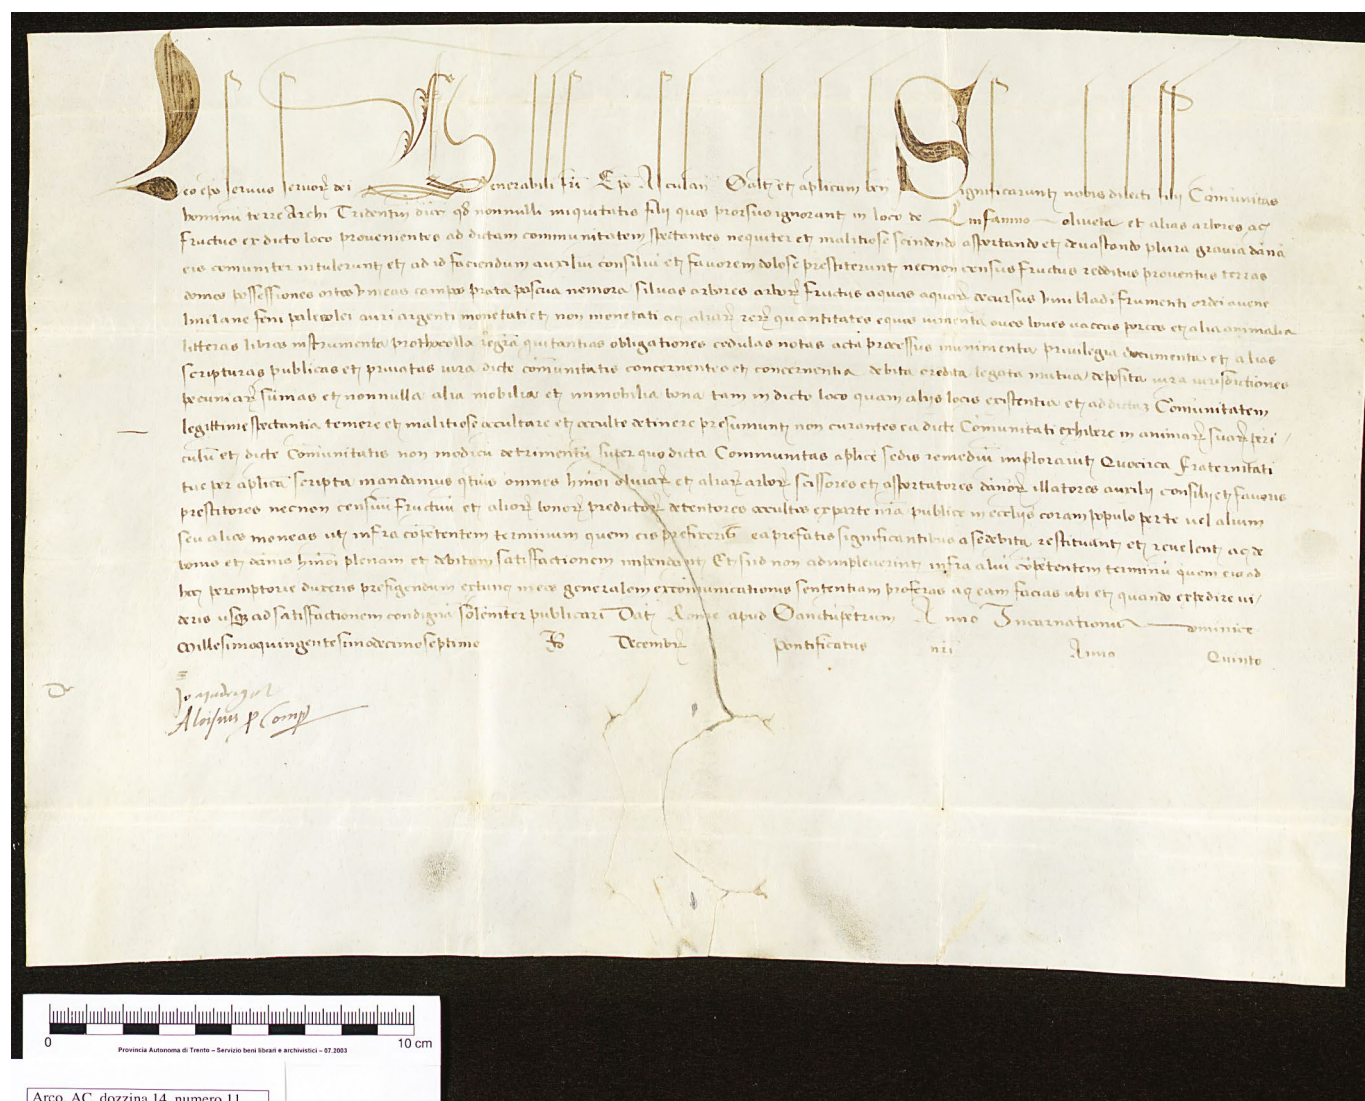 Leo epo servus servor dei Venerabili fri Epo Asculan Salt et aplicam ben Significarunt nobis dilecti filii Comunitas
hominu terre Archi Tridentin dioc qd nonnulli iniquitatis filii quos prorsus ignorant in loco de Linfamno oliveta et alias arbores ac
fructus ex dicto loco provenientes ad dictam communitatem spectantes nequiter et malitiose scindendo asportando et devastando plura gravia dana
eis comuniter intulerunt et ad id faciendum auxiliu consiliu et favorem dolose prestiterunt necnon census fructus redditus proventus terras
domos possessiones ortos vineas campos prata pascua nemora silvas arbores arbor fructus aquas aquar decursus vini bladi frumenti ordei avene
lini lane feni palee olei auri argenti monetati et non monetati ac aliar rer quantitates equos iumenta oves boves vaccas porcos et alia animalia
litteras libros instrumenta prothocolla regra quitantias obligationes cedulas notas acta processus munimenta privilegia documenta et alias
scripturas publicas et privatas iura dicte comunitatis concernentes et concernentia debita credita legata mutua deposita iura iurisdictiones
pecuniar sumas et nonnulla alia mobilia et immobilia bona tam in dicto loco quam aliis locis existentia et ad dictam Comunitatem
legittime spectantia temere et malitiose occultare et occulte detinere presumunt non curantes ea dicte Comunitati exhibere in animar suar peri
culu et dicte Comunitatis non modicu detrimentu super quo dicta Communitas aplice sedis remediu imploravit Quocirca fraternitati
tue per aplica scripta mandamus qtius omnes hmoi olivar et aliar arbor scissores et asportatores danor illatores auxilii consilii et favoris
prestitores necnon censuu fructuu et alior bonor predictor detentores occultos ex parte nra publice in ecclis coram populo per te vel alium
seu alios moneas ut infra competentem terminum quem eis prefixeris ea prefatis significantibus a se debita restituant et revelent ac de
bonis et danis hmoi plenam et debitam satisfactionem impendant Et si id non adimpleverint infra aliu competentem terminu quem eis ad
hoc peremptorie duxeris prefigendum extunc in eos generalem excomunicationis sententiam proferas ac eam facias ubi et quando expedire vi
deris usq ad satisfactionem condigna solemniter publicari Dat Rome apud Sanctupetrum Anno Incarnationis dominice
Millesimoquingentesimodecimoseptimo Decembr Pontificatus nri Anno Quinto
Aloisius p Comp
0 10 cm
Provincia Autonoma di Trento – Servizio beni librari e archivistici – 07.2003
Arco, AC, dozzina 14, numero 11